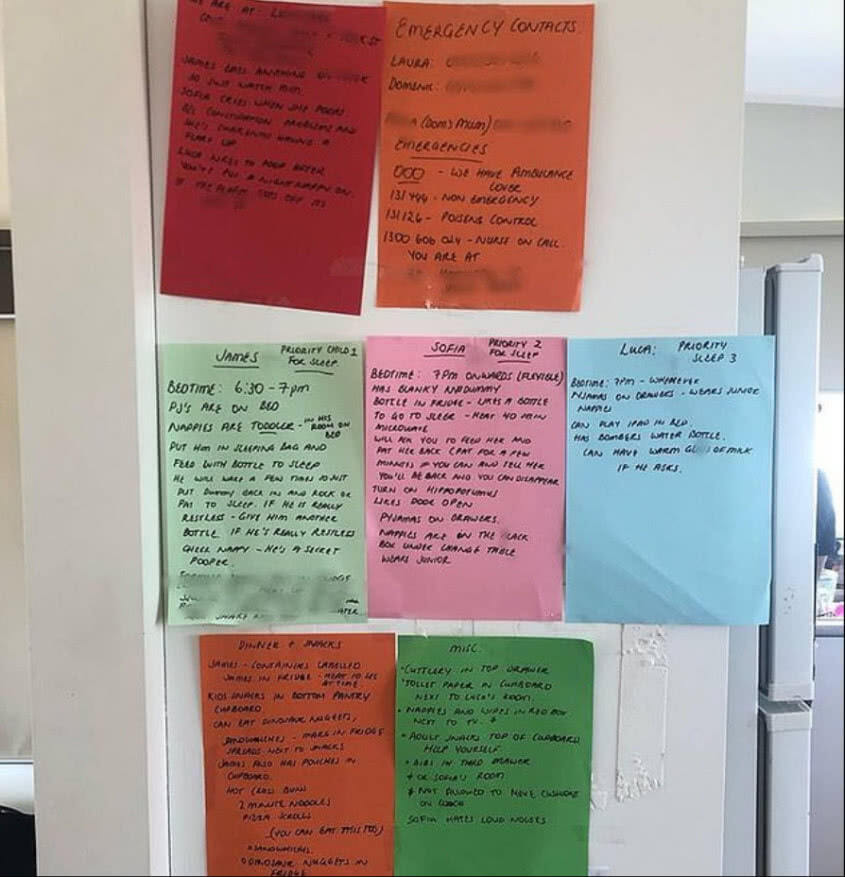 WE ARE AT -
JAMES EATS ANYTHING
SO JUST WATCH HIM.
SOFIA CRIES WHEN SHE POOPS
B/C CONSTIPATION PROBLEMS AND
SHE'S CURRENTLY HAVING A
FLARE UP
LUCA LIKES TO POOP AFTER
YOU'VE PUT A NIGHT NAPPY ON.
IF THE ALARM GOES OFF ITS
EMERGENCY CONTACTS
LAURA:
DOMENIC:
(DOMS MUM)
EMERGENCIES
000 - WE HAVE AMBULANCE
COVER
131444 - NON EMERGENCY
131126 - POISONS CONTROL
1300 606 024 - NURSE ON CALL.
YOU ARE AT
JAMES PRIORITY CHILD 1
FOR SLEEP
BEDTIME: 6:30 - 7pm
PJ'S ARE ON BED
NAPPIES ARE TODDLER - IN HIS
ROOM ON
BED
PUT HIM IN SLEEPING BAG AND
FEED WITH BOTTLE TO SLEEP
HE WILL WAKE A FEW TIMES SO JUST
PUT DUMMY BACK IN AND ROCK OR
PAT TO SLEEP. IF HE IS REALLY
RESTLESS - GIVE HIM ANOTHER
BOTTLE IF HE'S REALLY RESTLESS
CHECK NAPPY - HE'S A SECRET
POOPER.
SOFIA PRIORITY 2
FOR SLEEP
BEDTIME: 7PM ONWARDS (FLEXIBLE)
HAS BLANKY AND DUMMY
BOTTLE IN FRIDGE - LIKES A BOTTLE
TO GO TO SLEEP - HEAT 40 IN
MICROWAVE
WILL ASK YOU TO FEED HER AND
PAT HER BACK (PAT FOR A FEW
MINUTES IF YOU CAN AND TELL HER
YOU'LL BE BACK AND YOU CAN DISAPPEAR
TURN ON HIPPOPOTAMUS
LIKES DOOR OPEN
PYJAMAS ON DRAWERS.
NAPPIES ARE ON THE BLACK
BOX UNDER CHANGE TABLE
WEARS JUNIOR
LUCA: PRIORITY
SLEEP 3
BEDTIME: 7PM - WHENEVER
PYJAMAS ON DRAWERS - WEARS JUNIOR
NAPPIES
CAN PLAY IPAD IN BED.
HAS BOMBERS WATER BOTTLE.
CAN HAVE WARM GLASS OF MILK
IF HE ASKS.
DINNER + SNACKS
JAMES - CONTAINERS LABELLED
JAMES IN FRIDGE - HEAT 30 SEC
AT A TIME.
KIDS SNACKS IN BOTTOM PANTRY
CUPBOARD.
CAN EAT DINOSAUR NUGGETS,
SANDWHICHES - MARG IN FRIDGE
SPREADS NEXT TO SNACKS
JAMES ALSO HAS POUCHES IN
CUPBOARD.
HOT CROSS BUNS
2 MINUTE NOODLES
PIZZA SCROLLS
(YOU CAN EAT THIS TOO)
SANDWHICHES.
DINOSAUR NUGGETS IN
FRIDGE
MISC.
• CUTTLERY IN TOP DRAWER
• TOILET PAPER IN CUPBOARD
NEXT TO LUCA'S ROOM.
• NAPPIES AND WIPES IN RED BOX
NEXT TO TV.
• ADULT SNACKS TOP OF CUPBOARD
HELP YOURSELF.
• BIBS IN THIRD DRAWER
OR SOFIA'S ROOM
NOT ALLOWED TO MOVE CUSHIONS
ON COUCH
SOFIA HATES LOUD NOISES